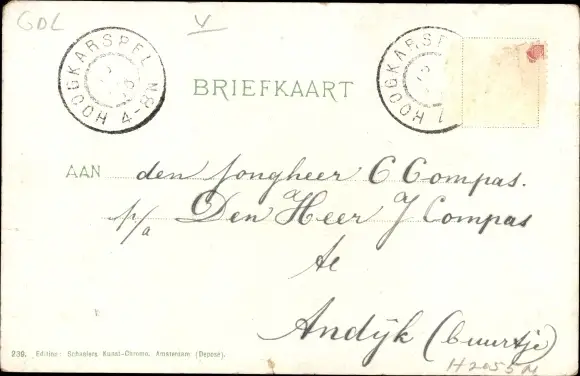 GDL
V
HOOGKARSPEL 4-8N
HOOGKARSP
BRIEFKAART
AAN den Jongheer C Compas.
p/a Den Heer J Compas
te
Andijk (buurtje)
H2055M
239. Editine: Schaefers Kunst-Chromo, Amsterdam (Deposé).